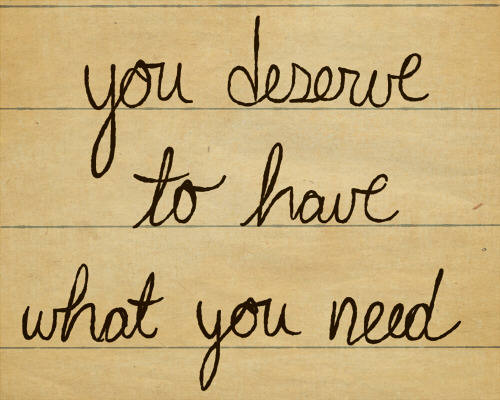 you deserve
to have
what you need